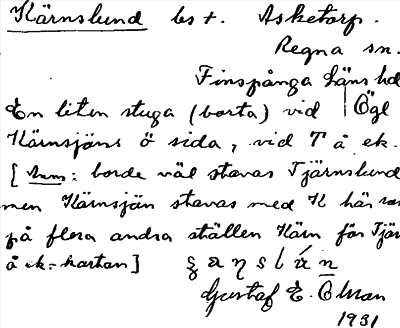 Kärnslund bs t. Asketorp.
Regna sn.
Finspånga läns hd
En liten stuga (borta) vid Ögl
Kärnsjöns ö sida, vid T å ek.
[Anm: borde väl stavas Tjärnslund
men Kärnsjön stavas med K här som
på flera andra ställen Kärn för Tjär
å ek.-kartan]
Gustaf E. Olsson
1931